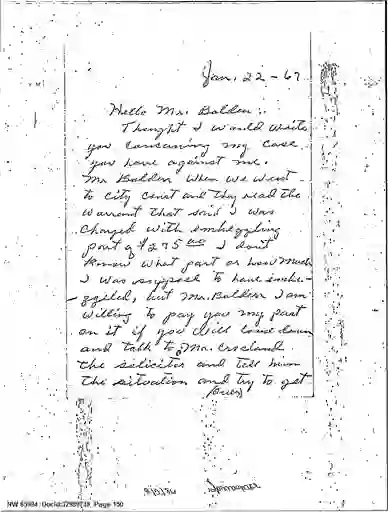 Jan. 22-67
Hello Mr. Balden:.
Thought I would write
you concerning my case
you have against me.
Mr Balden when we went
to city court and they read the
warrant that said I was
charged with embezzling
part of $275 00 I don't
know what part or how much
I was suppose to have embe-
zziled, but Mr. Balden I am
willing to pay you my part
on it if you will come down
and talk to Mr.
the soliciter and tell him
the situation and try to get
(over)
NW 65994 Page 150